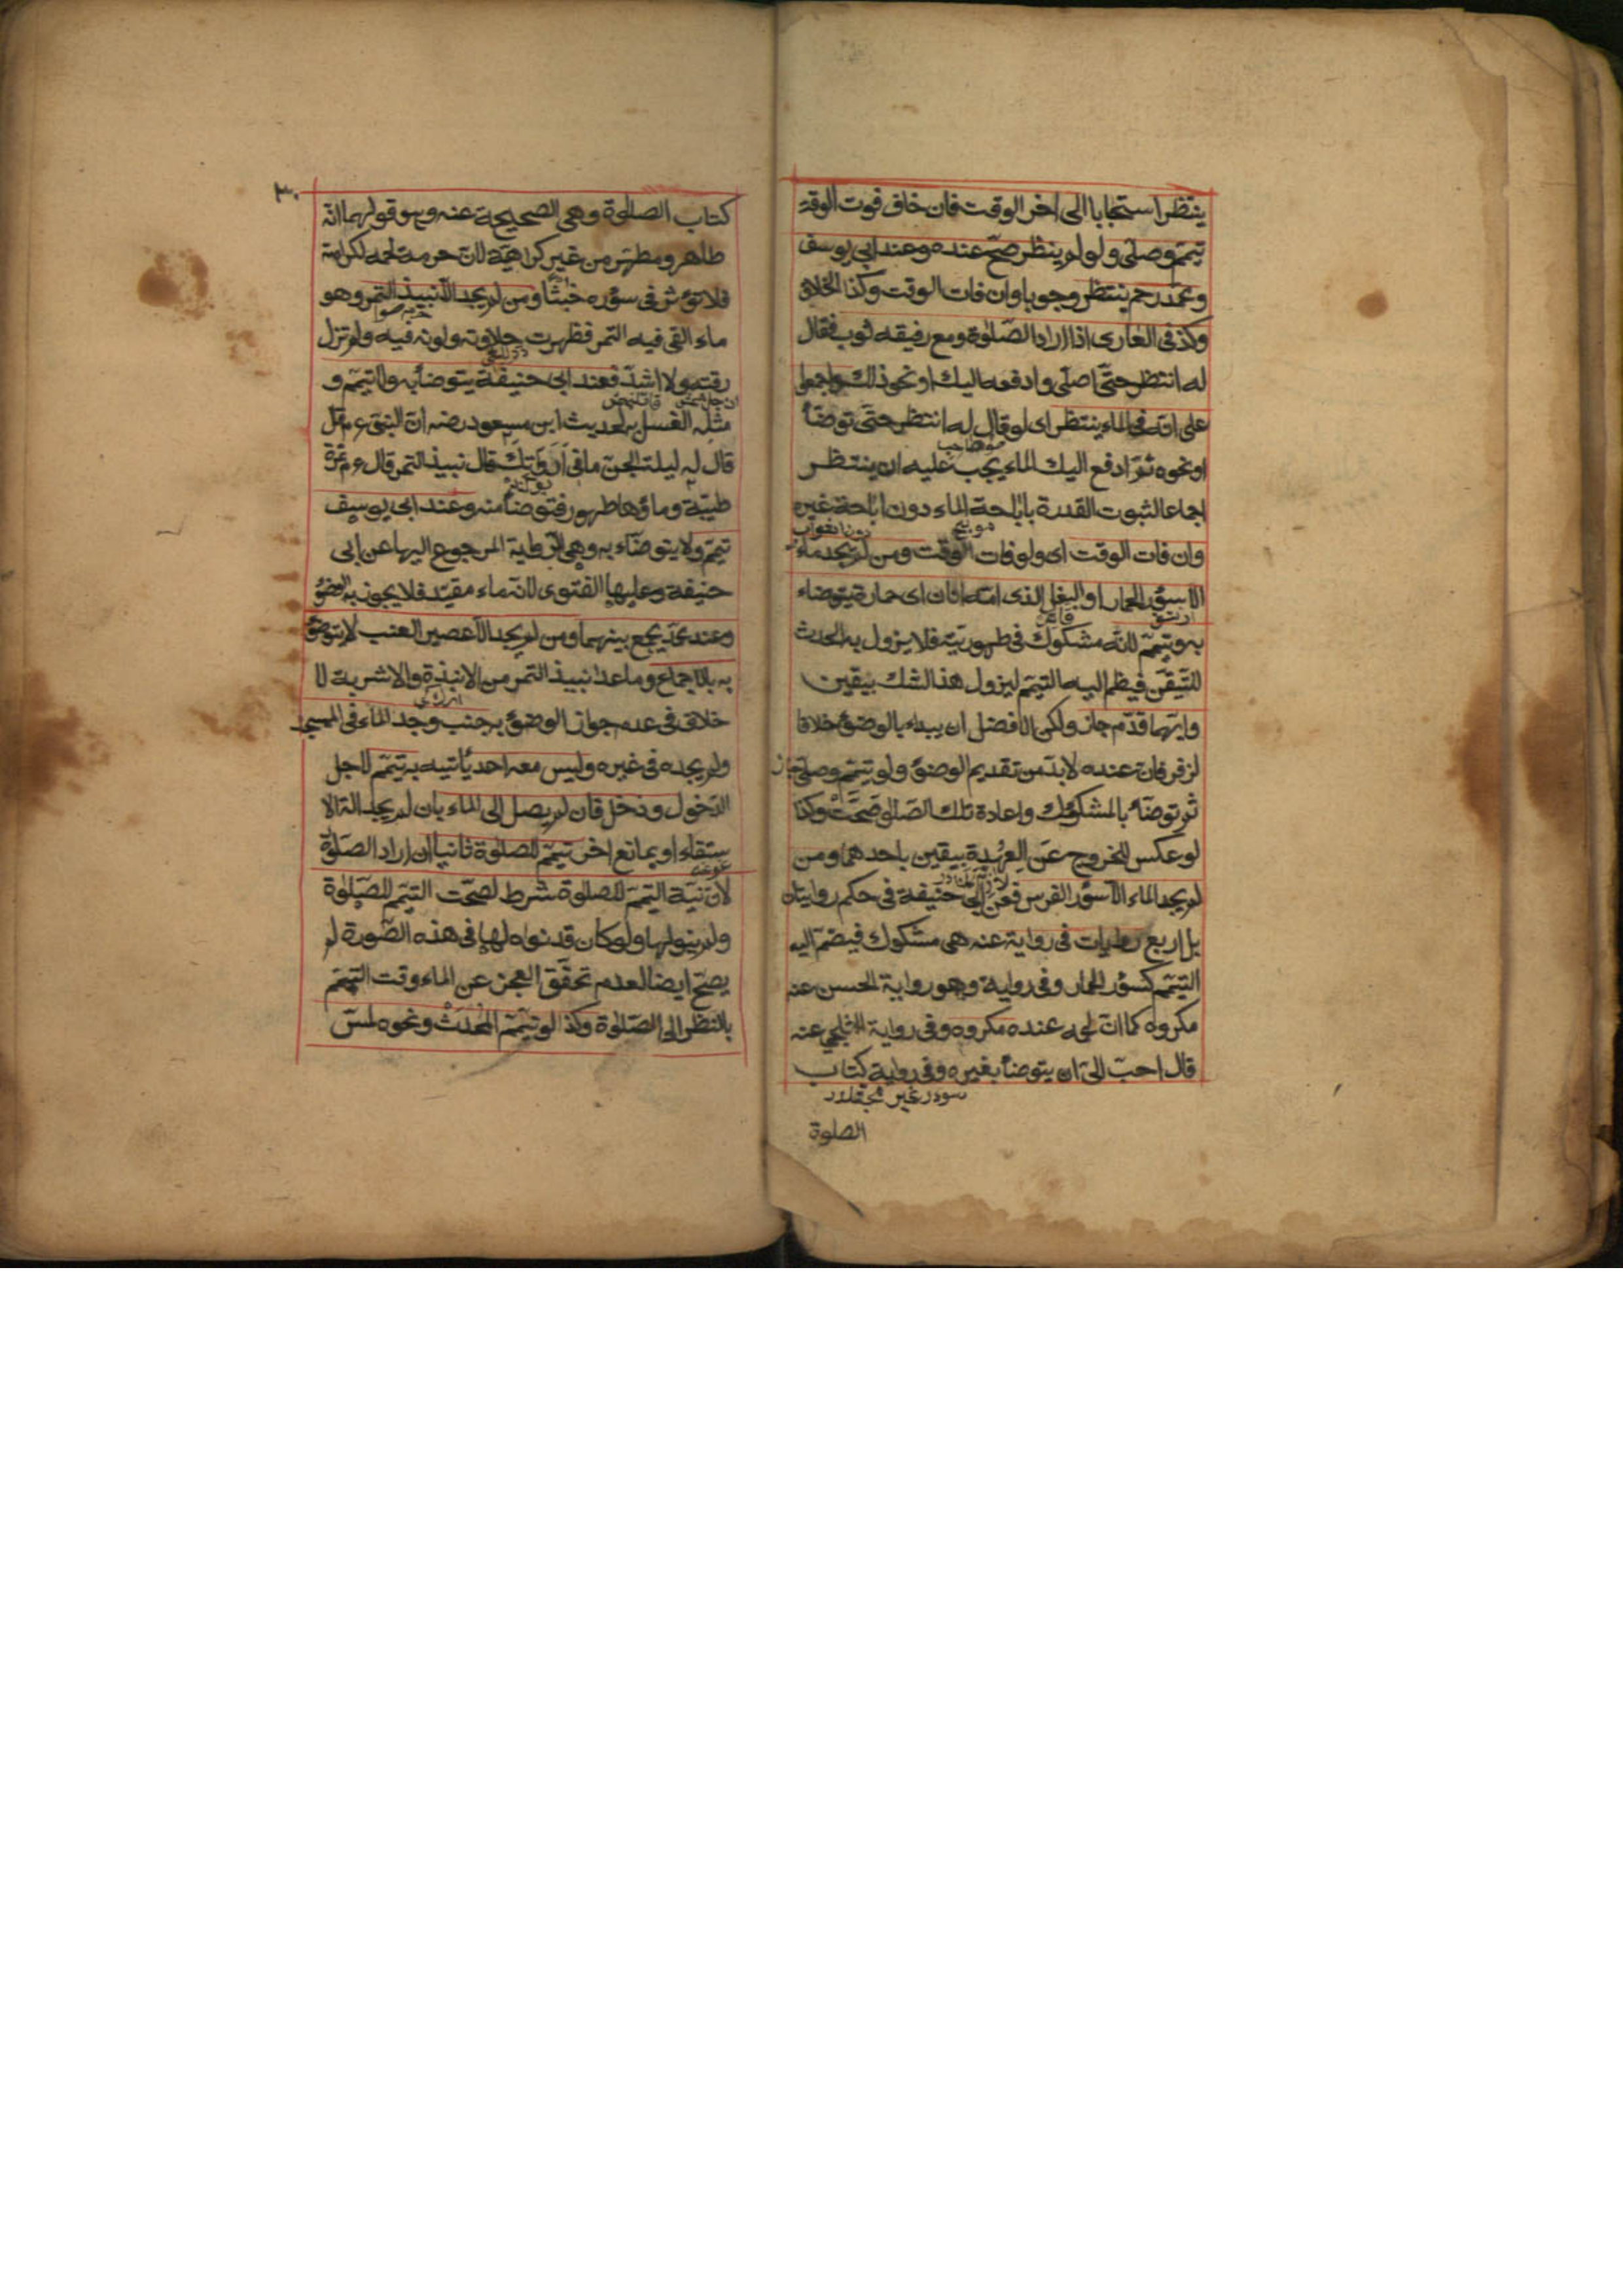 ينتظر استحبابا الى اخر الوقت فان خاف فوت الوقت
تيمم وصلى ولو لم ينتظر صح عنده وعند ابى يوسف
ومحمد رحم ينتظر وجوبا وان فات الوقت وكذا الخلاف
وكذ فى العارى اذا اراد الصلوة ومع رفيقه ثوب فقال
له انتظر حتى اصلى وادفعه اليك او نحو ذلك واجمعوا
على انه فى الماء ينتظر اى لو قال له انتظر حتى توضأ
او نحوه ثم ادفع اليك الماء يجب عليه ان ينتظر
اجماعا لثبوت القدرة باباحة الماء دون اباحة غيره
وان فات الوقت اى ولو فات الوقت ومن لم يجد ماء
الا سؤر الحمار او البغل الذى امه اتان اى حمارة يتوضاء
به ويتيمم لانه مشكوك فى طهوريته فلا يزول به الحدث
المتيقن فيظم اليه التيمم ليزول هذا الشك بيقين
وايهما قدم جاز ولكن الافضل ان يبداء بالوضؤ خلافا
لزفر فان عنده لا بد من تقديم الوضؤ ولو تيمم وصلى جاز
ثم توضأ بالمشكوك واعادة تلك الصلوة صحت وكذا
لو عكس للخروج عن العهدة بيقين باحدهما ومن
لم يجد الماء الا سؤر الفرس فعن ابى حنيفة فى حكم روايتان
بل اربع روايات فى رواية عنه هى مشكوك فيضم اليه
التيمم كسؤر الحمار وفى رواية وهو رواية الحسن عنه
مكروه كما ان لحمه عنده مكروه وفى رواية البلخى عنه
قال احب الى ان يتوضأ بغيره وفى رواية كتاب
الصلوة
٣٠
كتاب الصلوة وهى الصحيحة عنه وهو قولهما انه
طاهر ومطهر من غير كراهية لان حرمة لحمه لكرامته
فلا تؤثر فى سؤره خبثا ومن لم يجد الا نبيذ التمر وهو
ماء القى فيه التمر فظهرت حلاوته ولونه فيه ولم تزل
رقته ولا اشتد فعند ابى حنيفة يتوضأ به ولا تيمم و
مثله الغسل به لحديث ابن مسعود رضه ان النبى عم
قال له ليلة الجن ما فى اداوتك قال نبيذ التمر قال عم تمرة
طيبة وماؤها طهور فتوضأ منه وعند ابى يوسف
تيمم ولا يتوضاء به وهى الرواية المرجوع اليها عن ابى
حنيفة وعليها الفتوى لانه ماء مقيد فلا يجوز به الوضؤ
وعند محمد يجمع بينهما ومن لم يجد الا عصير العنب لا يتوضؤ
به بالاجماع وما عدا نبيذ التمر من الانبذة والاشربة لا
خلاف فى عدم جواز الوضؤ به جنب وجد الماء فى المسجد
ولم يجده فى غيره وليس معه احد يأتيه به تيمم لاجل
الدخول ودخل فان لم يصل الى الماء بان لم يجد الة الا
ستقاء او بمانع اخر تيمم للصلوة ثانيا ان اراد الصلوة
لان نية التيمم للصلوة شرط لصحت التيمم للصلوة
ولم ينو لها ولو كان قد نواه لها فى هذه الصورة لم
يصح ايضا لعدم تحقق العجز عن الماء وقت التيمم
بالنظر الى الصلوة وكذا لو تيمم المحدث ونحوه لمس